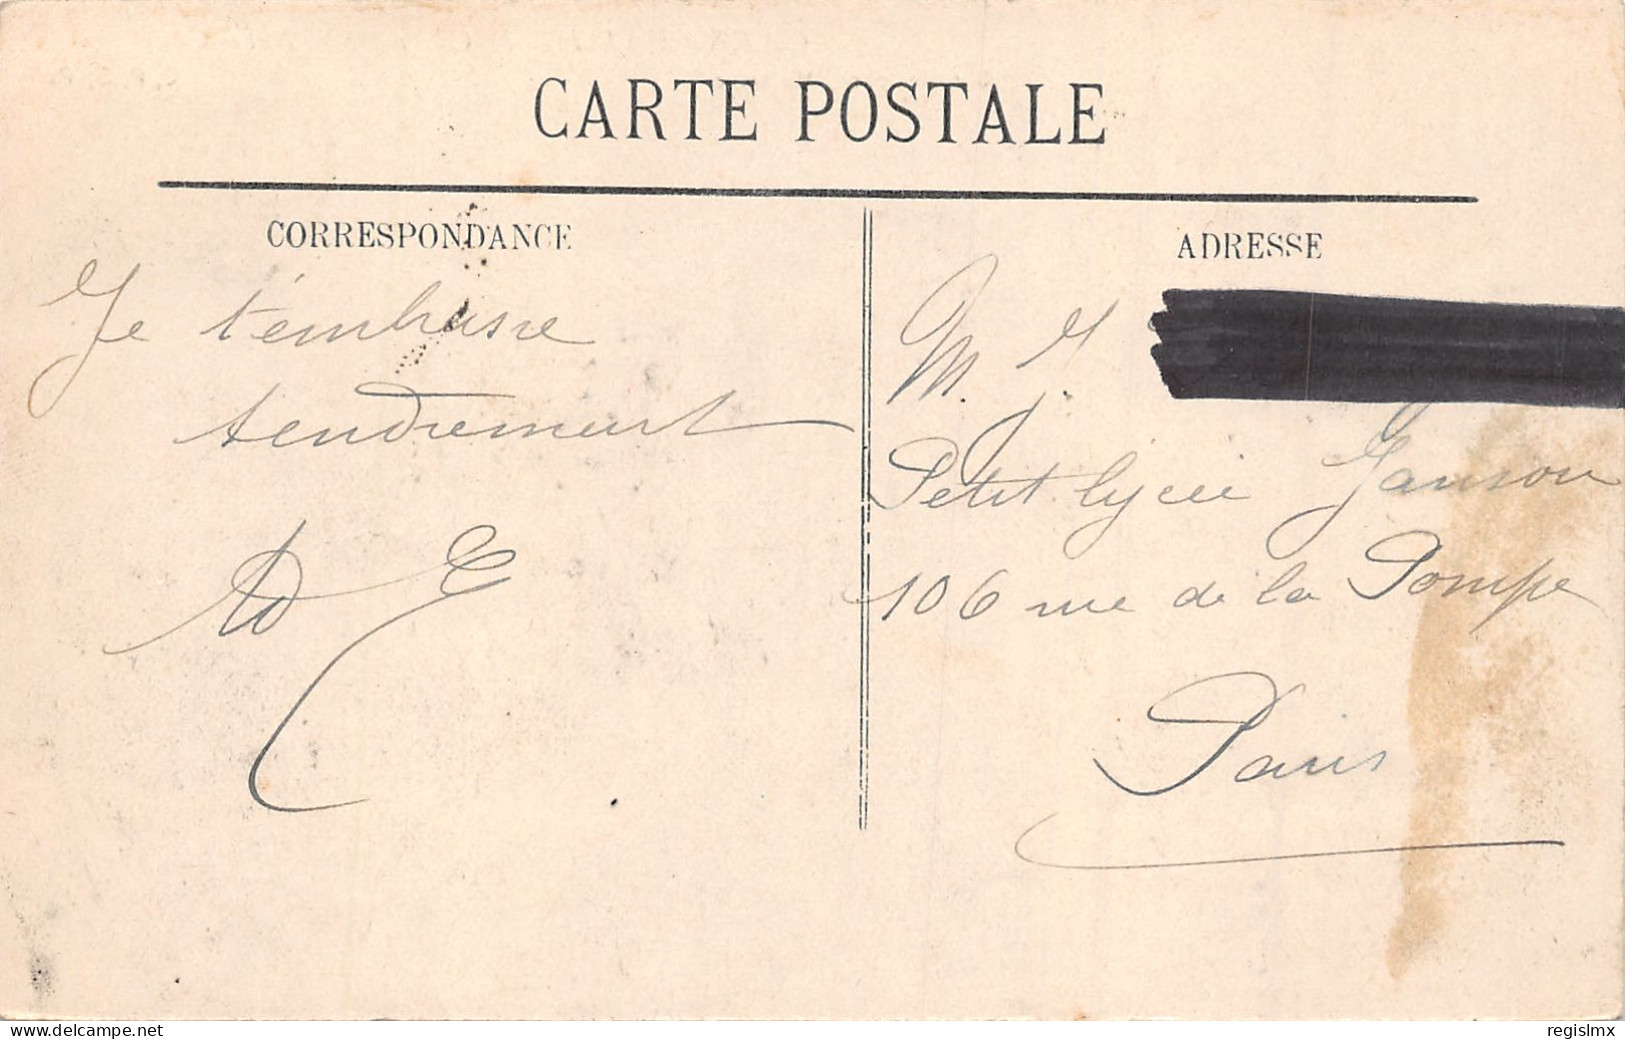 CARTE POSTALE
CORRESPONDANCE
Je t'embrasse
tendrement
ADRESSE
M. J.
Petit lycée Janson
106 rue de la Pompe
Paris
www.delcampe.net
regislmx